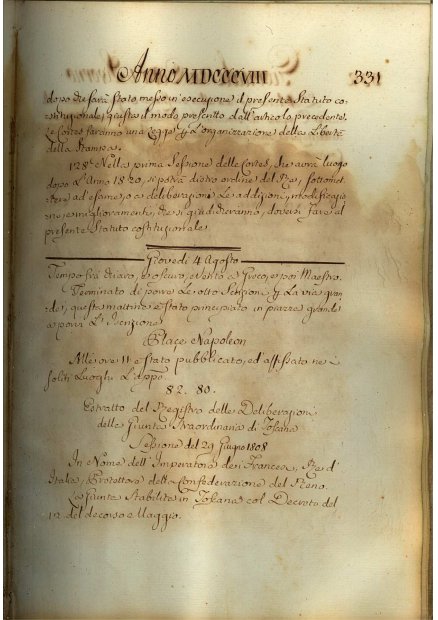 Anno MDCCCVIII 331
dopo che sarà stato messo in' esecuzione il presente Statuto co:
stituzionale, giusta il modo prescritto dall' artico.lo precedente,
le Cortes faranno una Legge p L'organizzazione della Libertà
della Stampa.
128. Nella prima Sessione delle Cortes, che avrà luogo
dopo L'Anno 1820, si potrà dietro ordine del Re, sottomet:
tere ad' esame, o a deliberazioni Le addizioni, modificazio:
ni, e miglioramenti, che si giudicheranno, doversi fare al
presente Statuto costituzionale.
Giovedì 4 Agosto
Tempo frà chiaro, e oscuro, e Vento a Greco, e poi Maestro.
Terminato di porre Le otto Iscrizioni p La via gran
de, questa mattina è stato principiato in piazza grande
a porvi L' Iscrizione
Place Napoleon
Alle ore 11 è stato pubblicato, ed' affissato ne
soliti Luoghi L'app.
82. 80.
Estratto del Registro delle Deliberazioni
della Giunta Straordinaria di Toscana
Sessione del 29 Giugno 1808
In Nome dell' Imperatore dei Francesi, Re d'
Italia, Protettore della Confederazione del Reno.
La Giunta Stabilita in Toscana col Decreto del
12 del decorso Maggio.